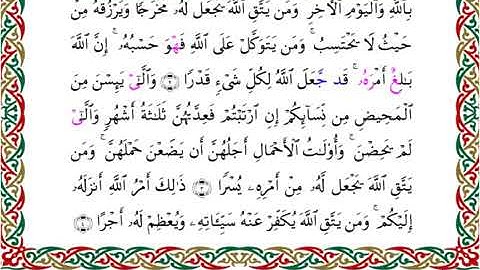 بِاللَّهِ وَالْيَوْمِ الْآخِرِ وَمَن يَتَّقِ اللَّهَ يَجْعَل لَّهُۥ مَخْرَجًا وَيَرْزُقْهُ مِنْ
حَيْثُ لَا يَحْتَسِبُ ۚ وَمَن يَتَوَكَّلْ عَلَى اللَّهِ فَهْوَ حَسْبُهُۥ ۚ إِنَّ اللَّهَ
بَٰلِغٌ أَمْرَهُۥ ۚ قَد جَّعَلَ اللَّهُ لِكُلِّ شَيْءٍ قَدْرًا وَالَّٰيْ يَئِسْنَ مِنَ
الْمَحِيضِ مِن نِّسَآئِكُمْ إِنِ ارْتَبْتُمْ فَعِدَّتُهُنَّ ثَلَٰثَةُ أَشْهُرٍ وَالَّٰيْ
لَمْ يَحِضْنَ ۚ وَأُو۟لَٰتُ الْأَحْمَالِ أَجَلُهُنَّ أَن يَضَعْنَ حَمْلَهُنَّ ۚ وَمَن
يَتَّقِ اللَّهَ يَجْعَل لَّهُۥ مِنْ أَمْرِهِۦ يُسْرًا ذَٰلِكَ أَمْرُ اللَّهِ أَنزَلَهُۥٓ
إِلَيْكُمْ ۚ وَمَن يَتَّقِ اللَّهَ يُكَفِّرْ عَنْهُ سَيِّـَٔاتِهِۦ وَيُعْظِمْ لَهُۥٓ أَجْرًا